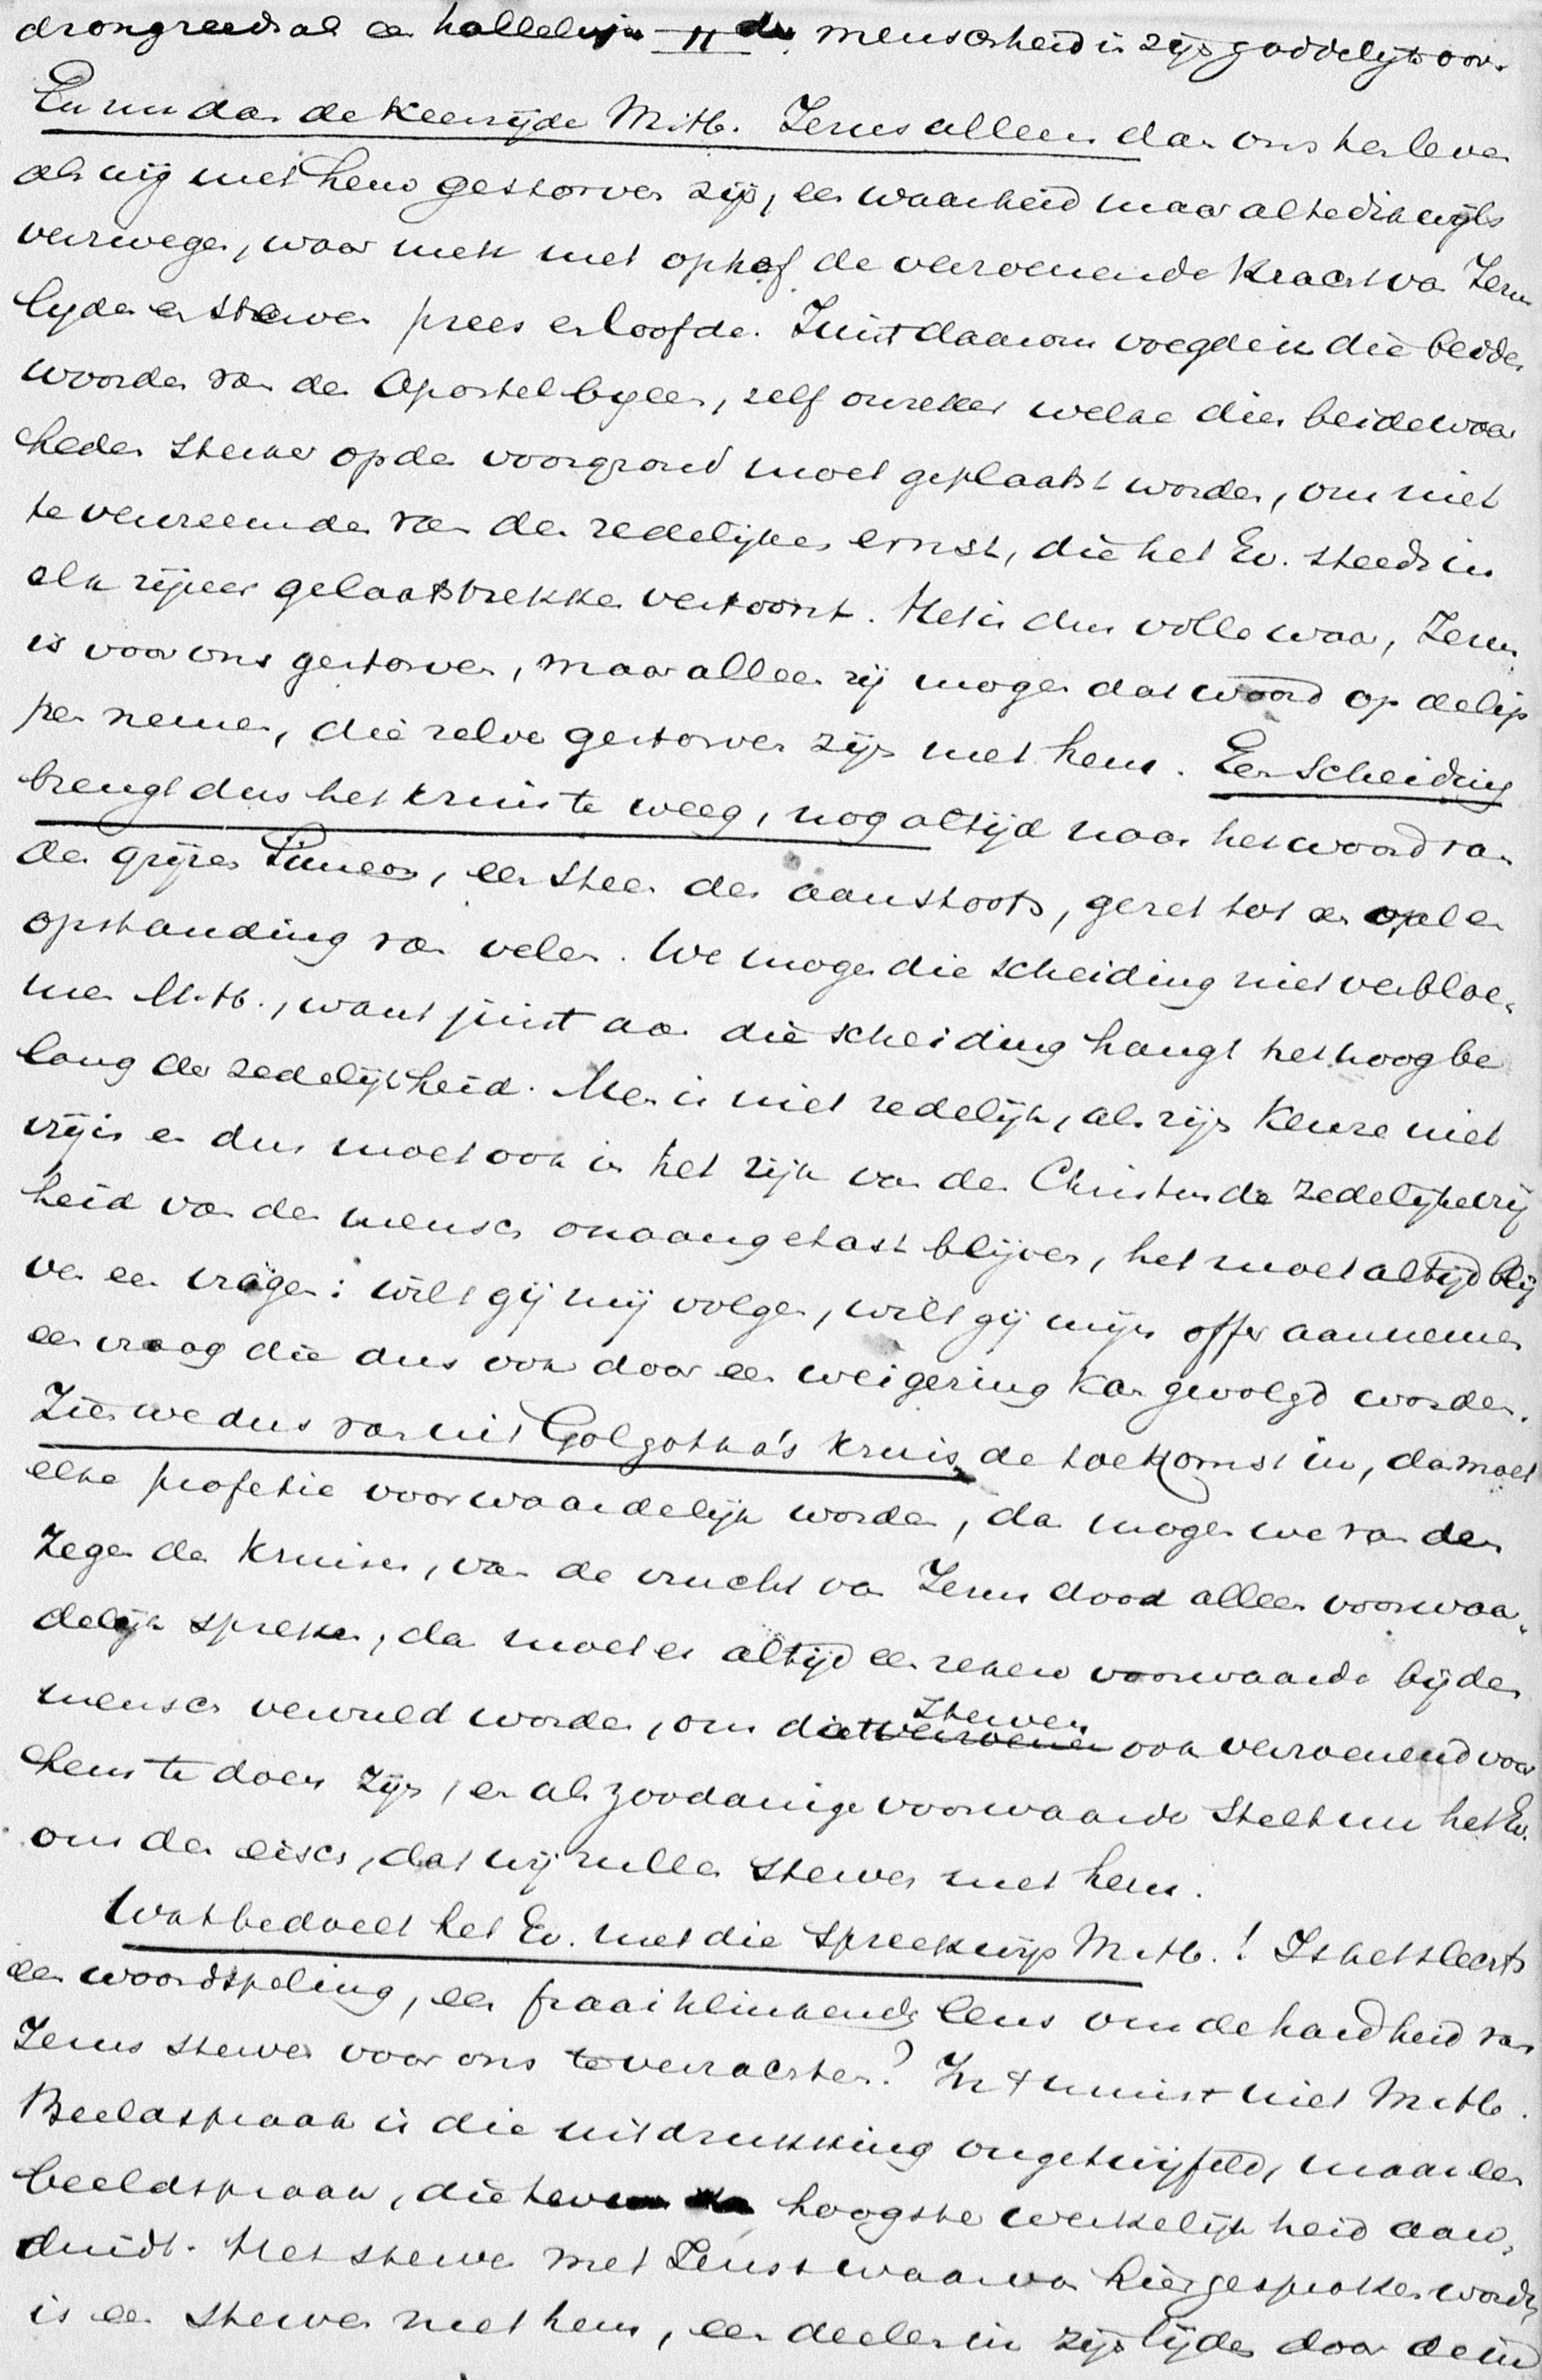 drong reeds al een halleluja der menscheid in zijn goddelijk oor.
En nu dan de keerzijde M.H. Jezus alleen dan ons ten leven
als wij met hem gestorven zijn, een waarheid maar al te dikwijls
verzwegen, waar men met ophef de verzoenende kracht van Jezus
lijden en sterven prees en loofde. Juist daarom voegde ik die beide
woorden van den Apostel bijeen, zelf onzeker welke dier beide waar
heden sterker op den voorgrond moet geplaatst worden, om niet
te vervreemden van den zedelijken ernst, die het Ev. steeds in
elk zijner gelaatstrekken vertoont. Het is dus volle waar, Jezus
is voor ons gestorven, maar alleen zij mogen dat woord op de lip
pen nemen, die zelve gestorven zijn met hem. Een scheiding
brengt dus het kruis te weeg, nog altijd naar het woord van
den grijzen Simeon, een steen des aanstoots, gezet tot een val en
opstanding van velen. We mogen die scheiding niet verbloe-
men M.H., want juist aan die scheiding hangt het hoog be
lang der zedelijkheid. Men is niet zedelijk, als zijn keuze niet
vrij is en dus moet ook in het rijk van den Christus de zedelijke vrij
heid van den mensch onaangetast blijven, het moet altijd blij
ven een vragen: wilt gij mij volgen, wilt gij mijn offer aannemen
een vraag die dus ook door een weigering kan gevolgd worden.
Zien we dus van uit Golgotha's kruis de toekomst in, dan moet
elke profetie voorwaardelijk worden, dan mogen we van den
zegen des kruises, van de vrucht van Jezus dood alleen voorwaar-
delijk spreken, dan moet er altijd een zekere voorwaarde bij den
mensch vervuld worden, om dat sterven ook verzoenend voor
hem te doen zijn, en als zoodanige voorwaarde stelt nu het Ev.
ons den eisch, dat wij zullen sterven met hem.
Wat bedoelt het Ev. met die spreekwijs M.H.! Is het slechts
een woordspeling, een fraai klinkende leus om de hardheid van
Jezus sterven voor ons te verzachten? In 't minst niet M.H.
Beeldspraak is die uitdrukking ongetwijfeld, maar een
beeldspraak, die tevens hoogste werkelijkheid aan-
duidt. Het sterven met Jezus waarvan hier gesproken wordt,
is een sterven met hem, een deelen in zijn lijden door de in